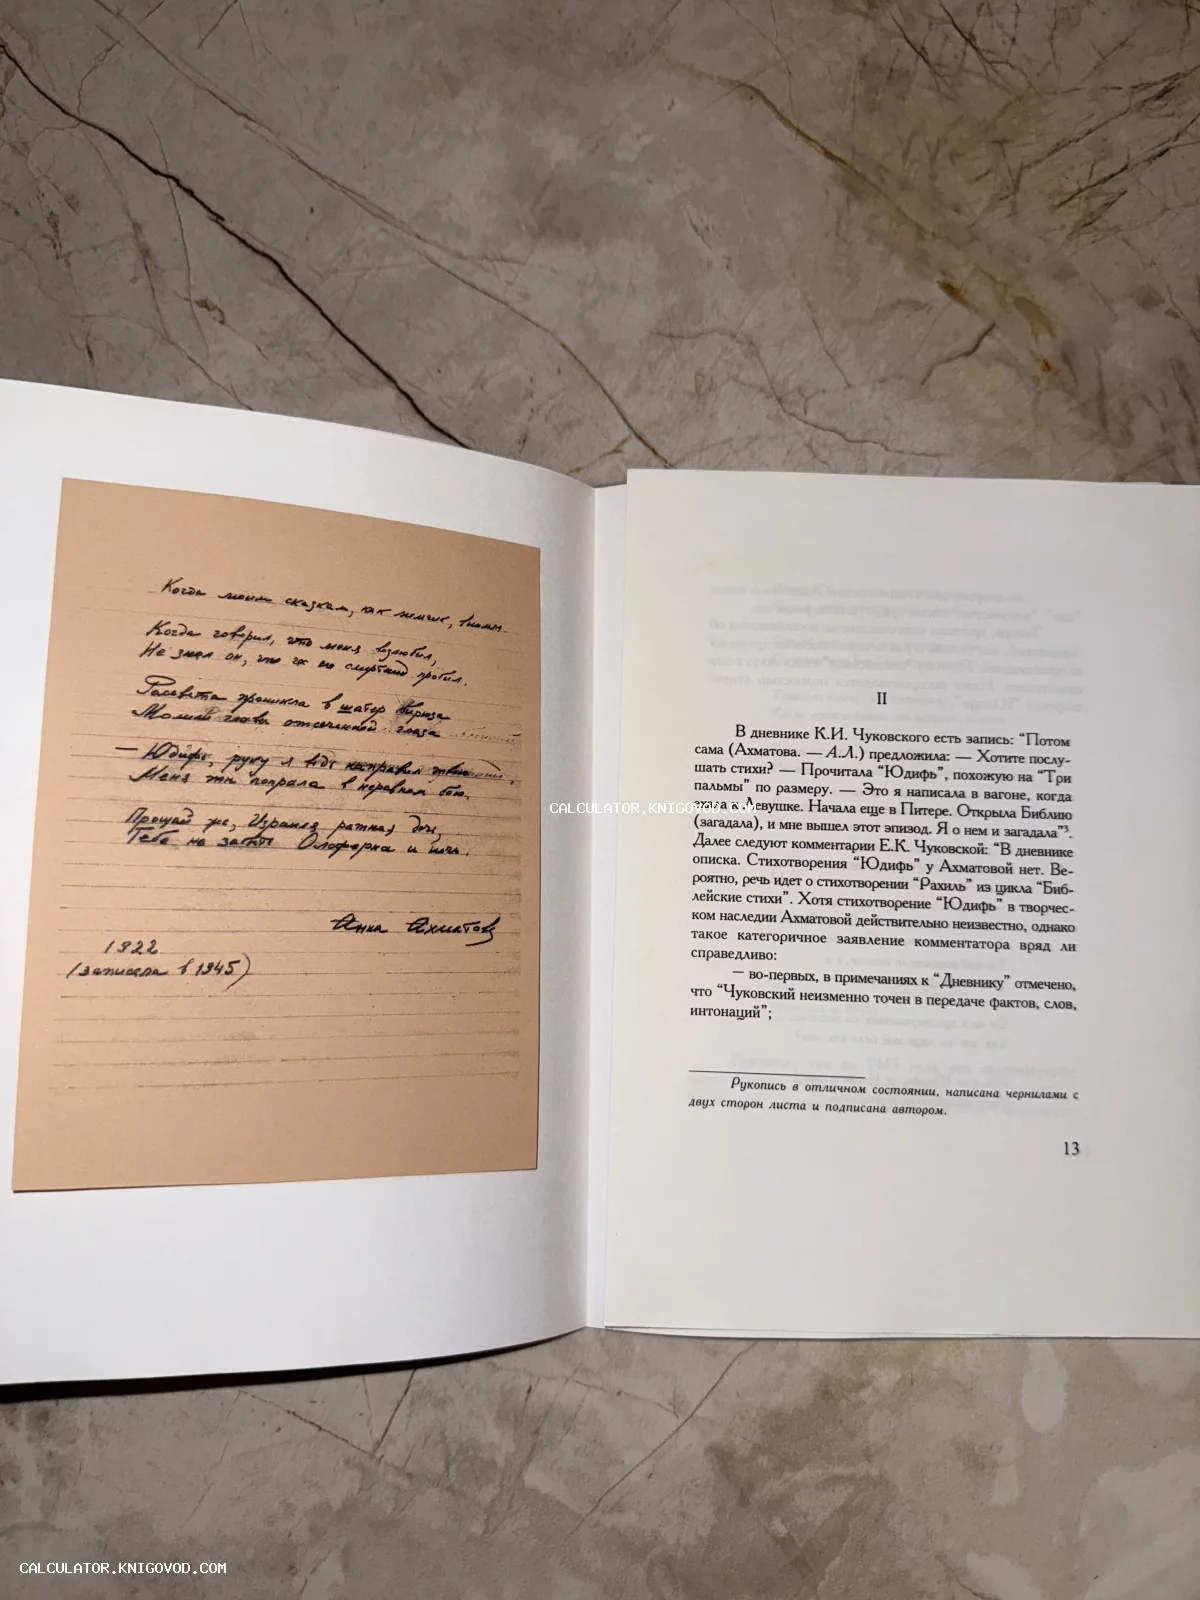 Когда моим сказкам, как
Когда говорил, что меня возлюбил,
Не знал он, что час его смертный пробил.
Рассвета проникла в шатер бирюза
Молили главы отсеченной глаза
— Юдифь, руку я направил
Меня ты попрала в неравном бою.
Прощай же, Израиля ратная дочь,
Тебе не забыть Олоферна и ночь.
Анна Ахматова
1922
(записала в 1945)
II
В дневнике К.И. Чуковского есть запись: “Потом
сама (Ахматова. — А.Л.) предложила: — Хотите послу-
шать стихи? — Прочитала “Юдифь”, похожую на “Три
пальмы” по размеру. — Это я написала в вагоне, когда
к Левушке. Начала еще в Питере. Открыла Библию
(загадала), и мне вышел этот эпизод. Я о нем и загадала”³.
Далее следуют комментарии Е.К. Чуковской: “В дневнике
описка. Стихотворения “Юдифь” у Ахматовой нет. Ве-
роятно, речь идет о стихотворении “Рахиль” из цикла “Биб-
лейские стихи”. Хотя стихотворение “Юдифь” в творчес-
ком наследии Ахматовой действительно неизвестно, однако
такое категоричное заявление комментатора вряд ли
справедливо:
— во-первых, в примечаниях к “Дневнику” отмечено,
что “Чуковский неизменно точен в передаче фактов, слов,
интонаций”;
Рукопись в отличном состоянии, написана чернилами с
двух сторон листа и подписана автором.
13
CALCULATOR.KNIGOVOD.COM
CALCULATOR.KNIGOVOD.COM